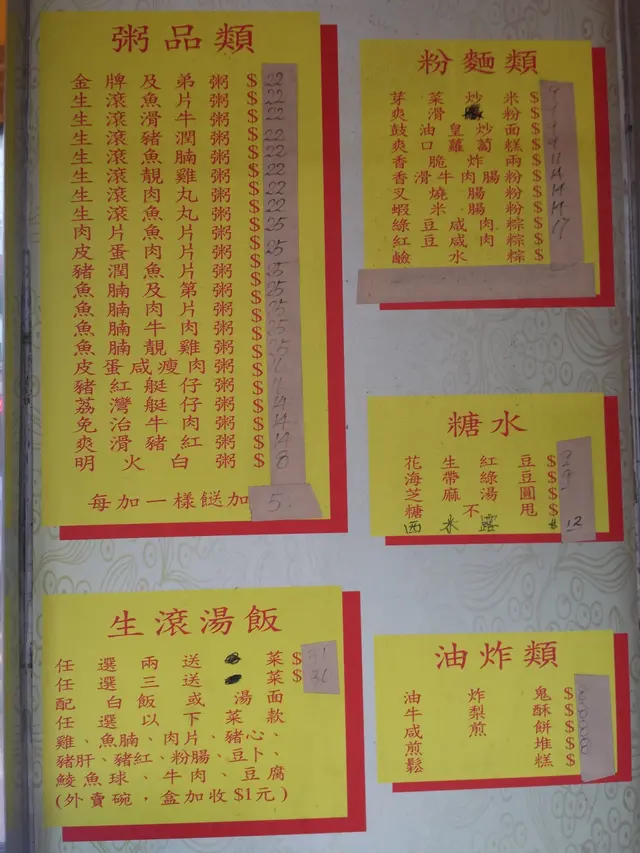 粥品類
金牌及弟粥 $22
生滾魚片粥 $22
生滾滑牛粥 $22
生滾豬潤粥 $22
生滾魚腩粥 $22
生滾靚雞粥 $22
生滾肉丸粥 $22
生滾魚丸粥 $22
肉片魚片粥 $25
皮蛋肉片粥 $25
豬潤魚片粥 $25
魚腩及第粥 $25
魚腩肉片粥 $25
魚腩牛肉粥 $25
魚腩靚雞粥 $25
皮蛋咸瘦肉粥 $
豬紅艇仔粥 $
荔灣艇仔粥 $14
免治牛肉粥 $14
爽滑豬紅粥 $14
明火白粥 $8
每加一樣餸加 5.
粉麵類
芽菜炒米 $9
爽滑粉 $
鼓油皇炒面 $
爽口蘿蔔糕 $9
香脆炸兩 $11
香滑牛肉腸粉 $14
叉燒腸粉 $14
蝦米腸粉 $14
綠豆咸肉粽 $17
紅豆咸肉粽 $
鹼水粽 $
糖水
花生紅豆 $
海帶綠豆 $
芝麻湯圓 $
糖不甩 $
西米露 $12
生滾湯飯
任選兩送菜 $31
任選三送菜 $36
配白飯或湯面
任選以下菜款
雞、魚腩、肉片、豬心、
豬肝、豬紅、粉腸、豆卜、
鯪魚球、牛肉、豆腐
(外賣碗，盒加收$1元)
油炸類
油炸鬼 $
牛梨酥 $
咸煎餅 $
煎堆 $
鬆糕 $